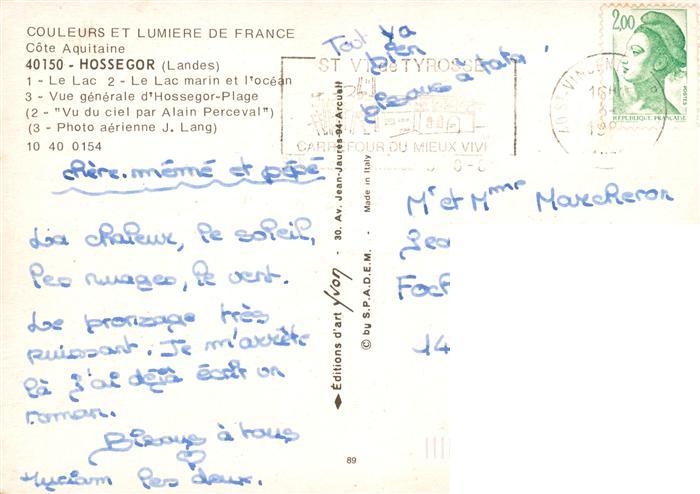 COULEURS ET LUMIERE DE FRANCE
Côte Aquitaine
40150 - HOSSEGOR (Landes)
1 - Le Lac 2 - Le Lac marin et l'océan
3 - Vue générale d'Hossegor-Plage
(2 - "Vu du ciel par Alain Perceval")
(3 - Photo aérienne J. Lang)
10 40 0154
chère mémé et pépé
La chaleur, le soleil,
les nuages, le vent.
Le bronzage très
puissant. Je m'arrête
là j'ai déjà écrit un
roman.
Bisous à tous
les deux.
Myriam
Tout va
bien
bisous à tata
ST VT de TYROSSE
CARREFOUR DU MIEUX VIVRE
2,00
REPUBLIQUE FRANÇAISE
POSTES
40 ST VINCENT
16H
Editions d'art yvon - 30, Av. Jean-Jaurès-94-Arcueil
© by S.P.A.D.E.M. - Made in Italy
Mr et Mme Marcheron
14
89